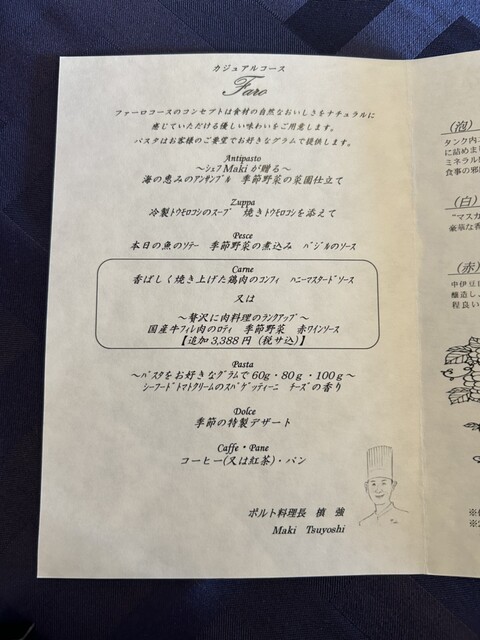 カジュアルコース
Faro
ファーロコースのコンセプトは食材の自然なおいしさをナチュラルに
感じていただける優しい味わいをご用意します。
パスタはお客様のご要望でお好きなグラムで提供します。
Antipasto
～ｼｪﾌ Maki が贈る～
海の恵みのｱﾝｻﾝﾌﾞﾙ 季節野菜の菜園仕立て
Zuppa
冷製ﾄｳﾓﾛｺｼのｽｰﾌﾟ 焼きﾄｳﾓﾛｺｼを添えて
Pesce
本日の魚のｿﾃｰ 季節野菜の煮込み ﾊﾞｼﾞﾙのｿｰｽ
Carne
香ばしく焼き上げた鶏肉のｺﾝﾌｨ ﾊﾆｰﾏｽﾀｰﾄﾞｿｰｽ
又は
～贅沢に肉料理のﾗﾝｸｱｯﾌﾟ～
国産牛ﾌｨﾚ肉のﾛﾃｨ 季節野菜 赤ﾜｲﾝｿｰｽ
【追加 3,388 円（税サ込）】
Pasta
～ﾊﾟｽﾀをお好きなｸﾞﾗﾑで 60g・80ｇ・100ｇ～
ｼｰﾌｰﾄﾞﾄﾏﾄｸﾘｰﾑのｽﾊﾟｹﾞｯﾃｨｰﾆ ﾁｰｽﾞの香り
Dolce
季節の特製デザート
Caffe・Pane
コーヒー(又は紅茶)・パン
ポルト料理長 槙 強
Maki Tsuyoshi
（泡）
タンク内二
に詰めま
ミネラル
食事の邪
（白）
"マスカ
豪華な香
（赤）
中伊豆
醸造し
程良い